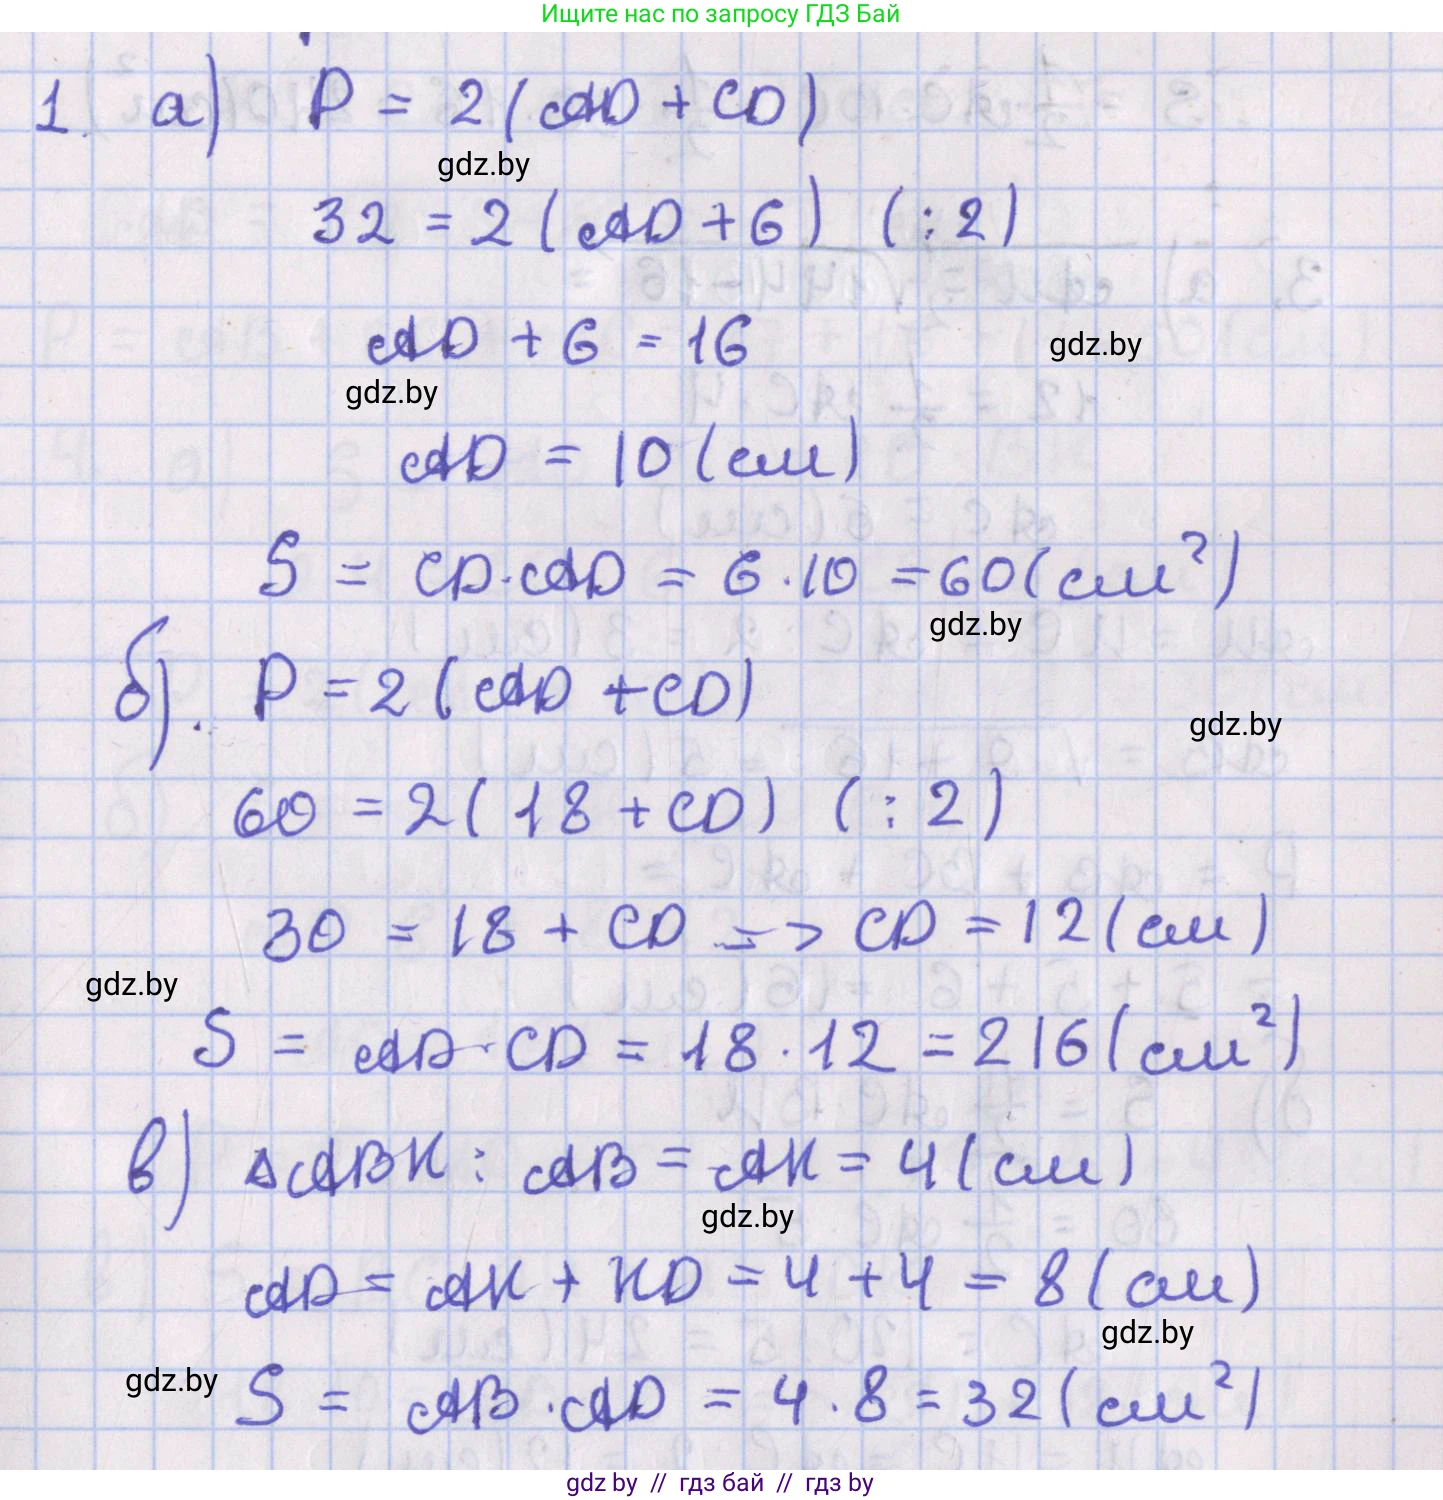 Ищите нас по запросу ГДЗ Бай
1. а) P = 2(AD + CD)
gdz.by
32 = 2(AD + 6) (:2)
AD + 6 = 16
gdz.by
gdz.by
AD = 10 (см)
S = CD·AD = 6·10 = 60 (см²)
gdz.by
б). P = 2(AD + CD)
gdz.by
60 = 2(18 + CD) (:2)
30 = 18 + CD => CD = 12 (см)
gdz.by
S = AD·CD = 18·12 = 216 (см²)
в) ΔABK: AB = AK = 4 (см)
gdz.by
AD = AK + KD = 4 + 4 = 8 (см)
gdz.by
gdz.by
S = AB·AD = 4·8 = 32 (см²)
gdz.by // гдз бай // гдз by